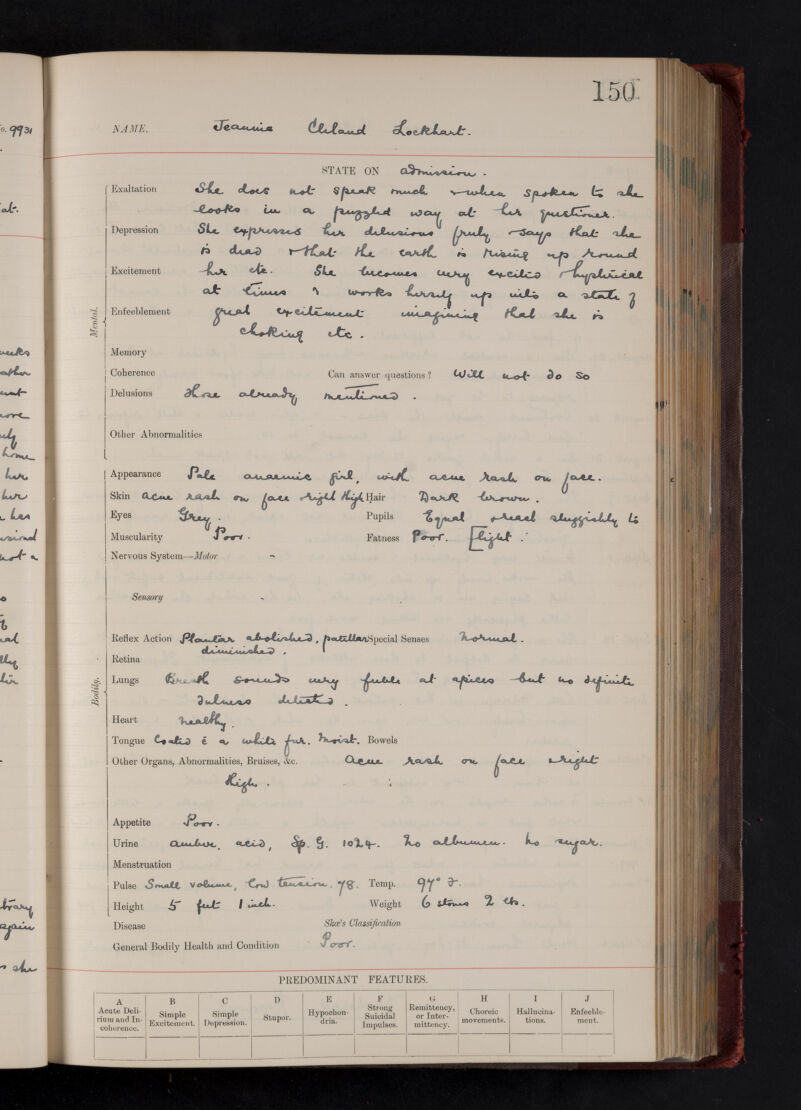 150
o. 9931
NAME. Jeannie Cleland Lockhart.
STATE ON admission.
Exaltation She does not speak much & when spoken to she
looks in a puzzled way at her questioner.
Depression She expresses her delusions freely & says that she
is dead & that the earth is rising up round
Excitement her etc. She becomes very excited & hysterical
at times & works herself up into a state of
Enfeeblement great excitement imagining that she is
choking etc.
Mental.
Memory
Coherence Can answer questions? Will not do so
Delusions Those already mentioned.
Other Abnormalities
Appearance Pale anaemic girl, with acne rash on face.
Skin acne rash on face & right thigh Hair Dark brown.
Eyes Grey. Pupils Equal & react sluggishly to
Muscularity Poor. Fatness Poor. [light.
Nervous System—Motor -
Sensory -
Reflex Action Plantar abolished, patellar Special Senses Normal.
diminished.
Retina
Bodily.
Lungs Breath sounds very feeble at apices but no definite
dulness detected.
Heart healthy.
Tongue Coated c̄ a white fur. Moist. Bowels
Other Organs, Abnormalities, Bruises, &c. Acne rash on face & right
thigh.
Appetite Poor.
Urine amber, acid, Sp. G. 1024. No albumen. No sugar.
Menstruation
Pulse Small volume, low tension. 78. Temp. 97° F.
Height 5 feet 1 inch. Weight 6 stones 2 lbs.
Disease Skae's Classification
General Bodily Health and Condition Poor.
PREDOMINANT FEATURES.
A B C D E F G H I J
Acute Delirium and Incoherence. Simple Excitement. Simple Depression. Stupor. Hypochondria. Strong Suicidal Impulses. Remittency, or Intermittency. Choreic movements. Hallucinations. Enfeeblement.